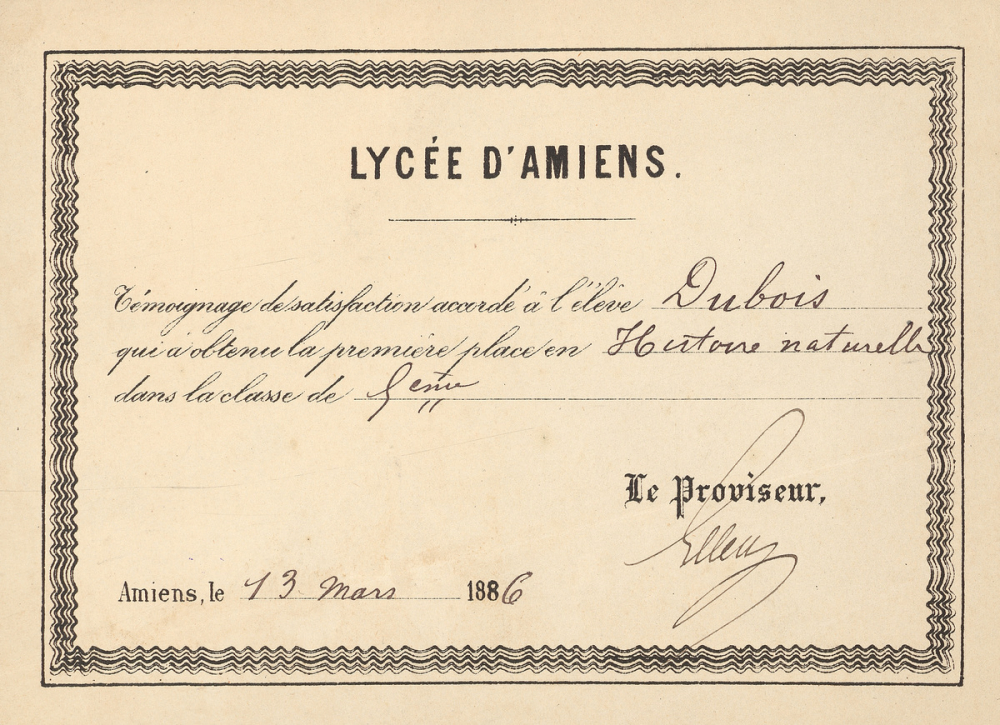 LYCÉE D'AMIENS.
Témoignage de satisfaction accordé à l'élève Dubois
qui a obtenu la première place en Histoire naturelle
dans la classe de 5eme
Le Proviseur,
Amiens, le 13 mars 1886